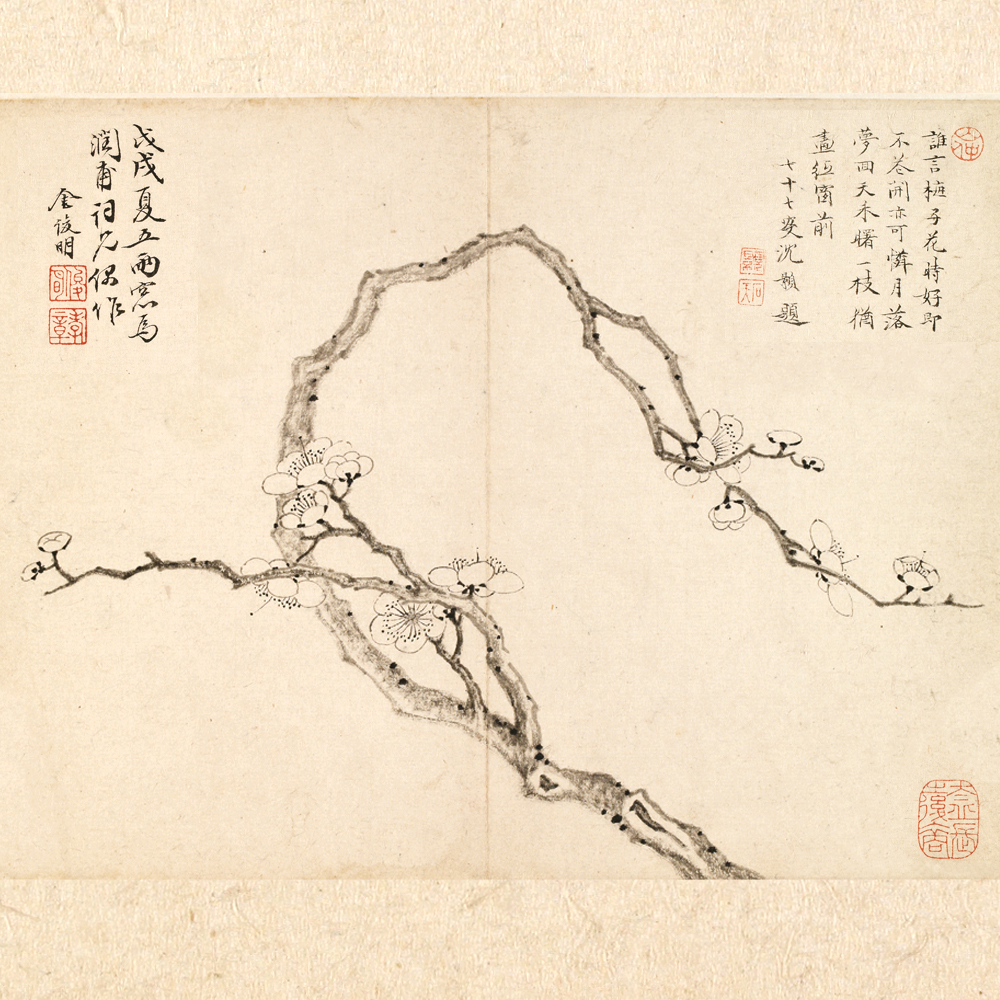 誰言梅子花時好即
不開亦可憐月落
夢回天未曙一枝猶
畫紙窗前
七十七叟沈顥題
石天
戊戌夏五雨窓為
潤甫詞兄偶作
金俊明
俊明
孝章